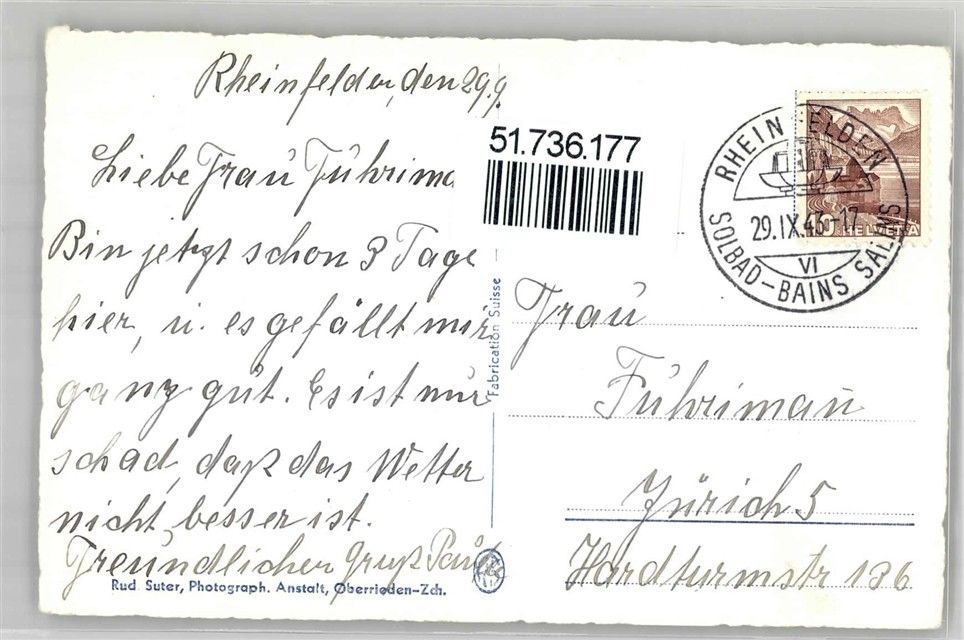 Rheinfelden, den 29.9.
Liebe Frau Führima
Bin jetzt schon 3 Tage
hier, u. es gefällt mir
ganz gut. Es ist nur
schad, daß das Wetter
nicht besser ist.
Freundlicher Gruß Paul
Rud. Suter, Photograph. Anstalt, Oberrieden-Zch.
51.736.177
Fabrication Suisse
RHEINFELDEN
29.IX.43-17
VI
SOLBAD-BAINS SALINS
HELVETIA
Frau
Führimau
Zürich 5
Hardturmstr 136